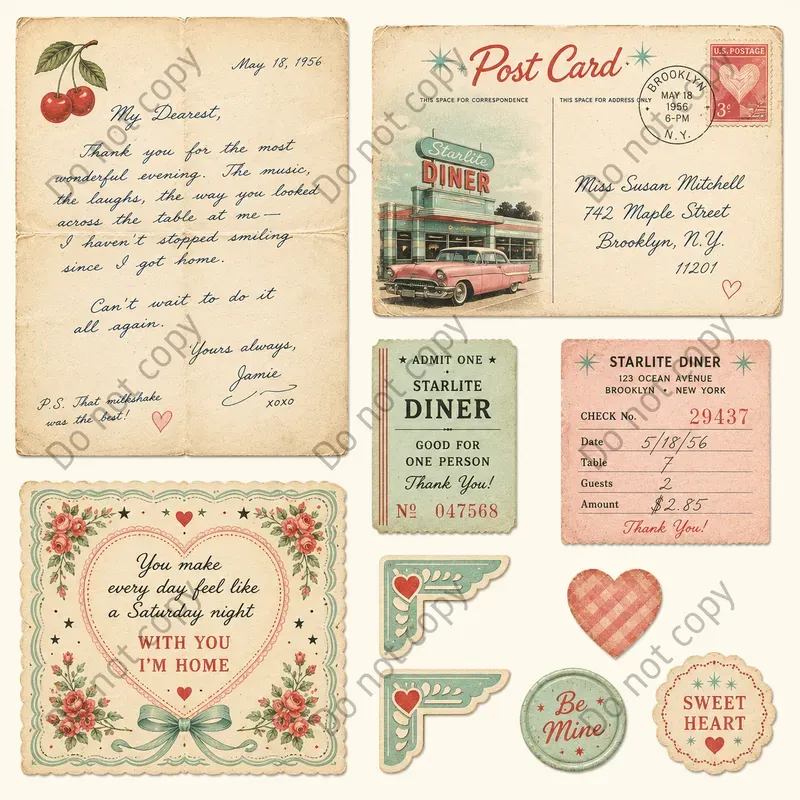 May 18, 1956
My Dearest,
Thank you for the most
wonderful evening. The music,
the laughs, the way you looked
across the table at me —
I haven't stopped smiling
since I got home.
Can't wait to do it
all again.
Yours always,
Jamie
xoxo
P.S. That milkshake
was the best!
Post Card
THIS SPACE FOR CORRESPONDENCE
THIS SPACE FOR ADDRESS ONLY
U.S. POSTAGE
3¢
BROOKLYN
MAY 18
1956
6-PM
N.Y.
Starlite
DINER
Miss Susan Mitchell
742 Maple Street
Brooklyn, N.Y.
11201
★ ADMIT ONE ★
STARLITE
DINER
GOOD FOR
ONE PERSON
Thank You!
Nº 047568
STARLITE DINER
123 OCEAN AVENUE
BROOKLYN • NEW YORK
CHECK No. 29437
Date 5/18/56
Table 7
Guests 2
Amount $2.85
Thank You!
You make
every day feel like
a Saturday night
WITH YOU
I'M HOME
Be
Mine
SWEET
HEART
Do not copy
Do not copy
Do not copy
Do not copy
Do not copy
Do not copy
Do not copy
Do not copy
Do not copy